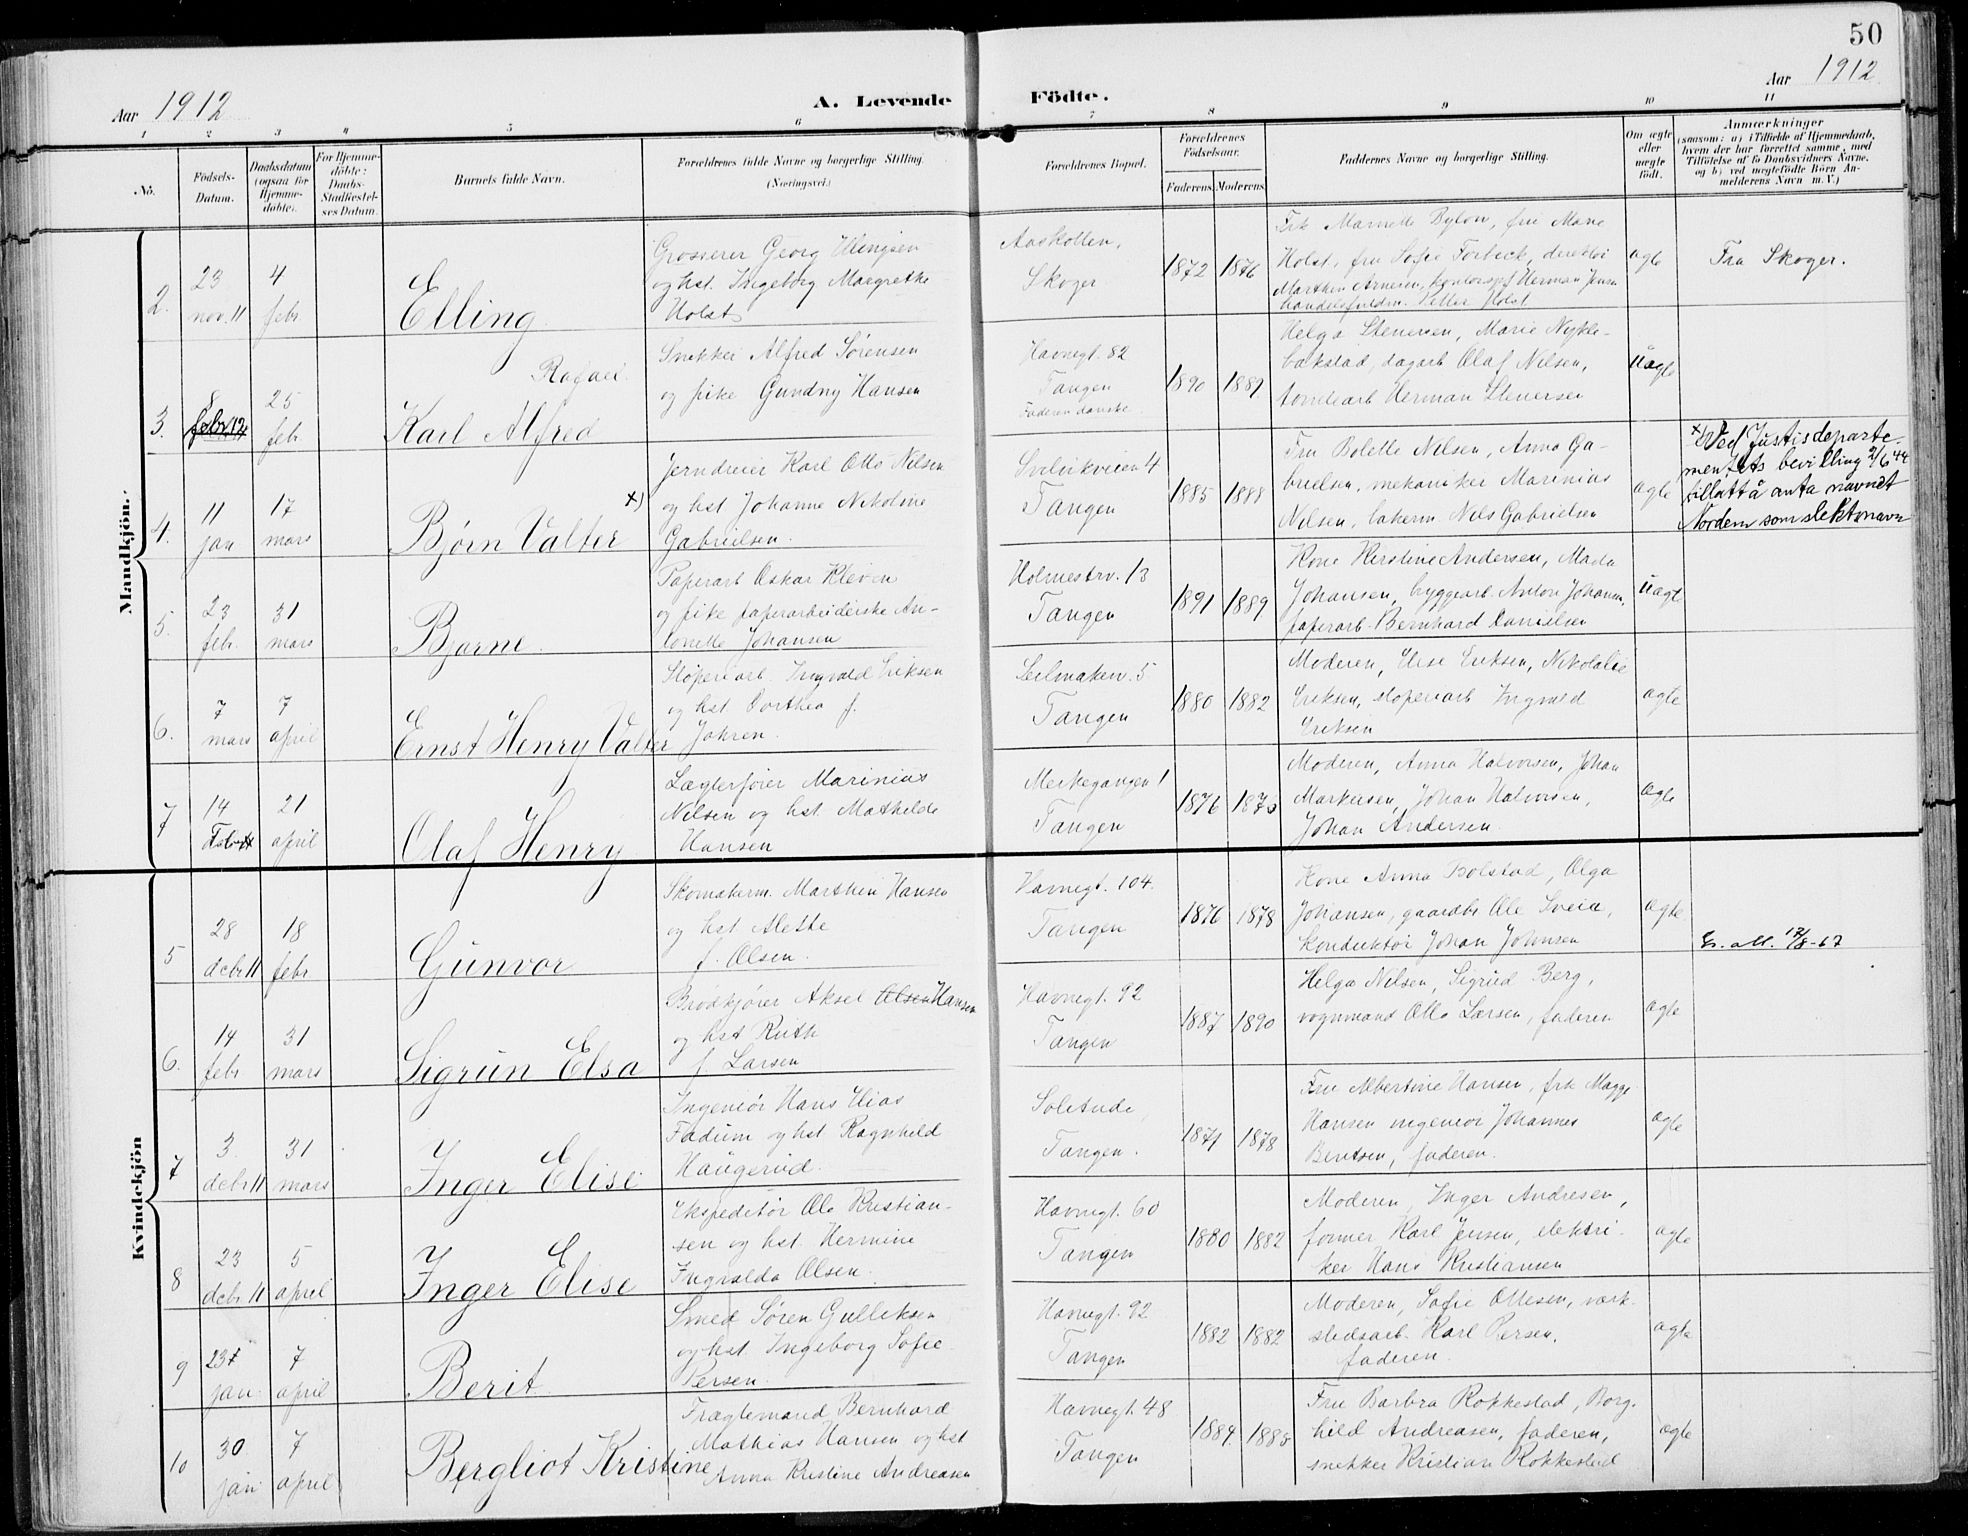 50
Aar 1912
A. Levende Födte.
Aar 1912
1 2 3 4 5 6 7 8 9 10 11
No.
Fødsels-
Datum.
Daabsdatum
(ogsaa for
Hjemme-
döbte).
For Hjemme-
döbte:
Daabs-
Stadfæstel-
ses Datum.
Barnets fulde Navn.
Forældrenes fulde Navne og borgerlige Stilling.
(Næringsvei.)
Forældrenes Bopæl.
Forældrenes
Födselsaar.
Faderens. Moderens.
Faddernes Navne og borgerlige Stilling.
Om ægte
eller
uægte
født.
Anmærkninger
(saasom: a) i Tilfælde af Hjemmedaab,
hvem der har forrettet samme, med
Tilføielse af to Daabsvidners Navne,
og b) ved uægtefödte Börn An-
melderens Navn m. V.)
Mandkjön.
2.
23
nov. 11
4
febr
Elling
Grosserer Georg Ellingsen
og hst. Ingeborg Margrethe
Holst
Aaskollen,
Skoger
1872 1876
Holst, fru Sofie Torbeck,
Marthin Arnesen, Herman Jensen
Petter Holst
ægte
Fra Skoger.
3.
8
febr 12
25
febr
Rafael
Karl Alfred
Snekker Alfred Sørensen
og pike Gundny Hansen
Havnegt. 82
Tangen
Faderen danske
1890 1889
Helga Stenersen, Marie Nykle-
bakstad, dagarb Olaf Nilsen,
tomtearb Herman Stenersen
uægte
4.
11
jan
17
mars
Bjørn Valter x)
Jerndreier Karl Otto Nilsen
og hst Johanne Nikoline
Gabrielsen.
Svelvikveien 4
Tangen
1885 1888
Fru Bolette Nilsen, Anna Ga-
brielsen, mekaniker Marinius
Nilsen, bakerm. Nils Gabrielsen
ægte
x) Ved Justisdeparte-
mentets bevilling 2/6 44
tillatt å anta navnet
Nordem som slektsnavn
5.
23
febr.
31
mars
Bjarne
Papirarb Oskar Kleven
og pike papirarbeiderske An-
tonette Johansen
Holmestrv. 13
Tangen
1891 1889.
Kone Kirstine Andersen, Marta
Johansen, byggearb. Anton Johansen,
papirarb. Bernhard Danielsen
uægte
6.
7
mars
7
april
Ernst Henry Valter
Støperiarb. Ingvald Eriksen
og hst Dorthea f.
Johren.
Seilmakerv. 5
Tangen
1880 1882
Moderen, Else Eriksen, Nikolaie
Eriksen, støperiarb Ingvald
Eriksen
ægte
7
14
Febr
21
april
Olaf Henry
Lægterfører Marinius
Nilsen og hst. Mathilde
Hansen
Merkegangen 1
Tangen
1876 1875
Moderen, Anna Halvorsen, Johan
Markusen, Johan Halvorsen,
Johan Andersen.
ægte
Kvindekjön
5
28
debr 11
18
febr
Gunvor
Skomakerm. Marthin Hansen
og hst Alette
f. Olsen.
Havnegt. 104.
Tangen
1876 1878
Kone Anna Bolstad, Olga
Johansen, gaardbr Ole Sveia,
konduktør Johan Johnsen
ægte
17/8-67
6.
14
febr
31
mars
Sigrun Elsa
Brødkjører Aksel Olsen Hansen
og hst Ruth
f Larsen
Havnegt. 92
Tangen
1887 1890
Helga Nilsen, Sigrid Berg,
vognmand Otto Larsen, faderen
ægte
7
3.
debr 11
31
mars
Inger Elise
Ingeniør Hans Elias
Fadum og hst Ragnhild
Haugerud.
Solitude,
Tangen.
1871 1878
Fru Albertine Hansen, frk Magge
Hansen ingeniør Johannes
Berntsen, faderen.
ægte
8
23
debr. 11
5
april
Inger Elise
Ekspeditør Ole Kristian-
sen og hst. Hermine
Ingvalda Olsen.
Havnegt. 60
Tangen
1880 1882
Moderen, Inger Andresen,
former Karl Jensen, elektri-
ker Hans Kristiansen
ægte
9
23
jan
7
april
Berit
Smed Søren Gulliksen
og hst. Ingeborg Sofie
Persen
Havnegt. 92
Tangen
1882 1882
Moderen, Sofie Ottesen, værk-
stedsarb. Karl Persen,
faderen
ægte
10
30
jan
7
april
Bergliot Kristine
Fragtemand Bernhard
Mathias Hansen og hst
Anna Kristine Andreasen
Havnegt. 48
Tangen
1884 1888
Fru Barbra Rokkestad, Borg-
hild Andreasen, faderen,
snekker Kristian Rokkestad
ægte